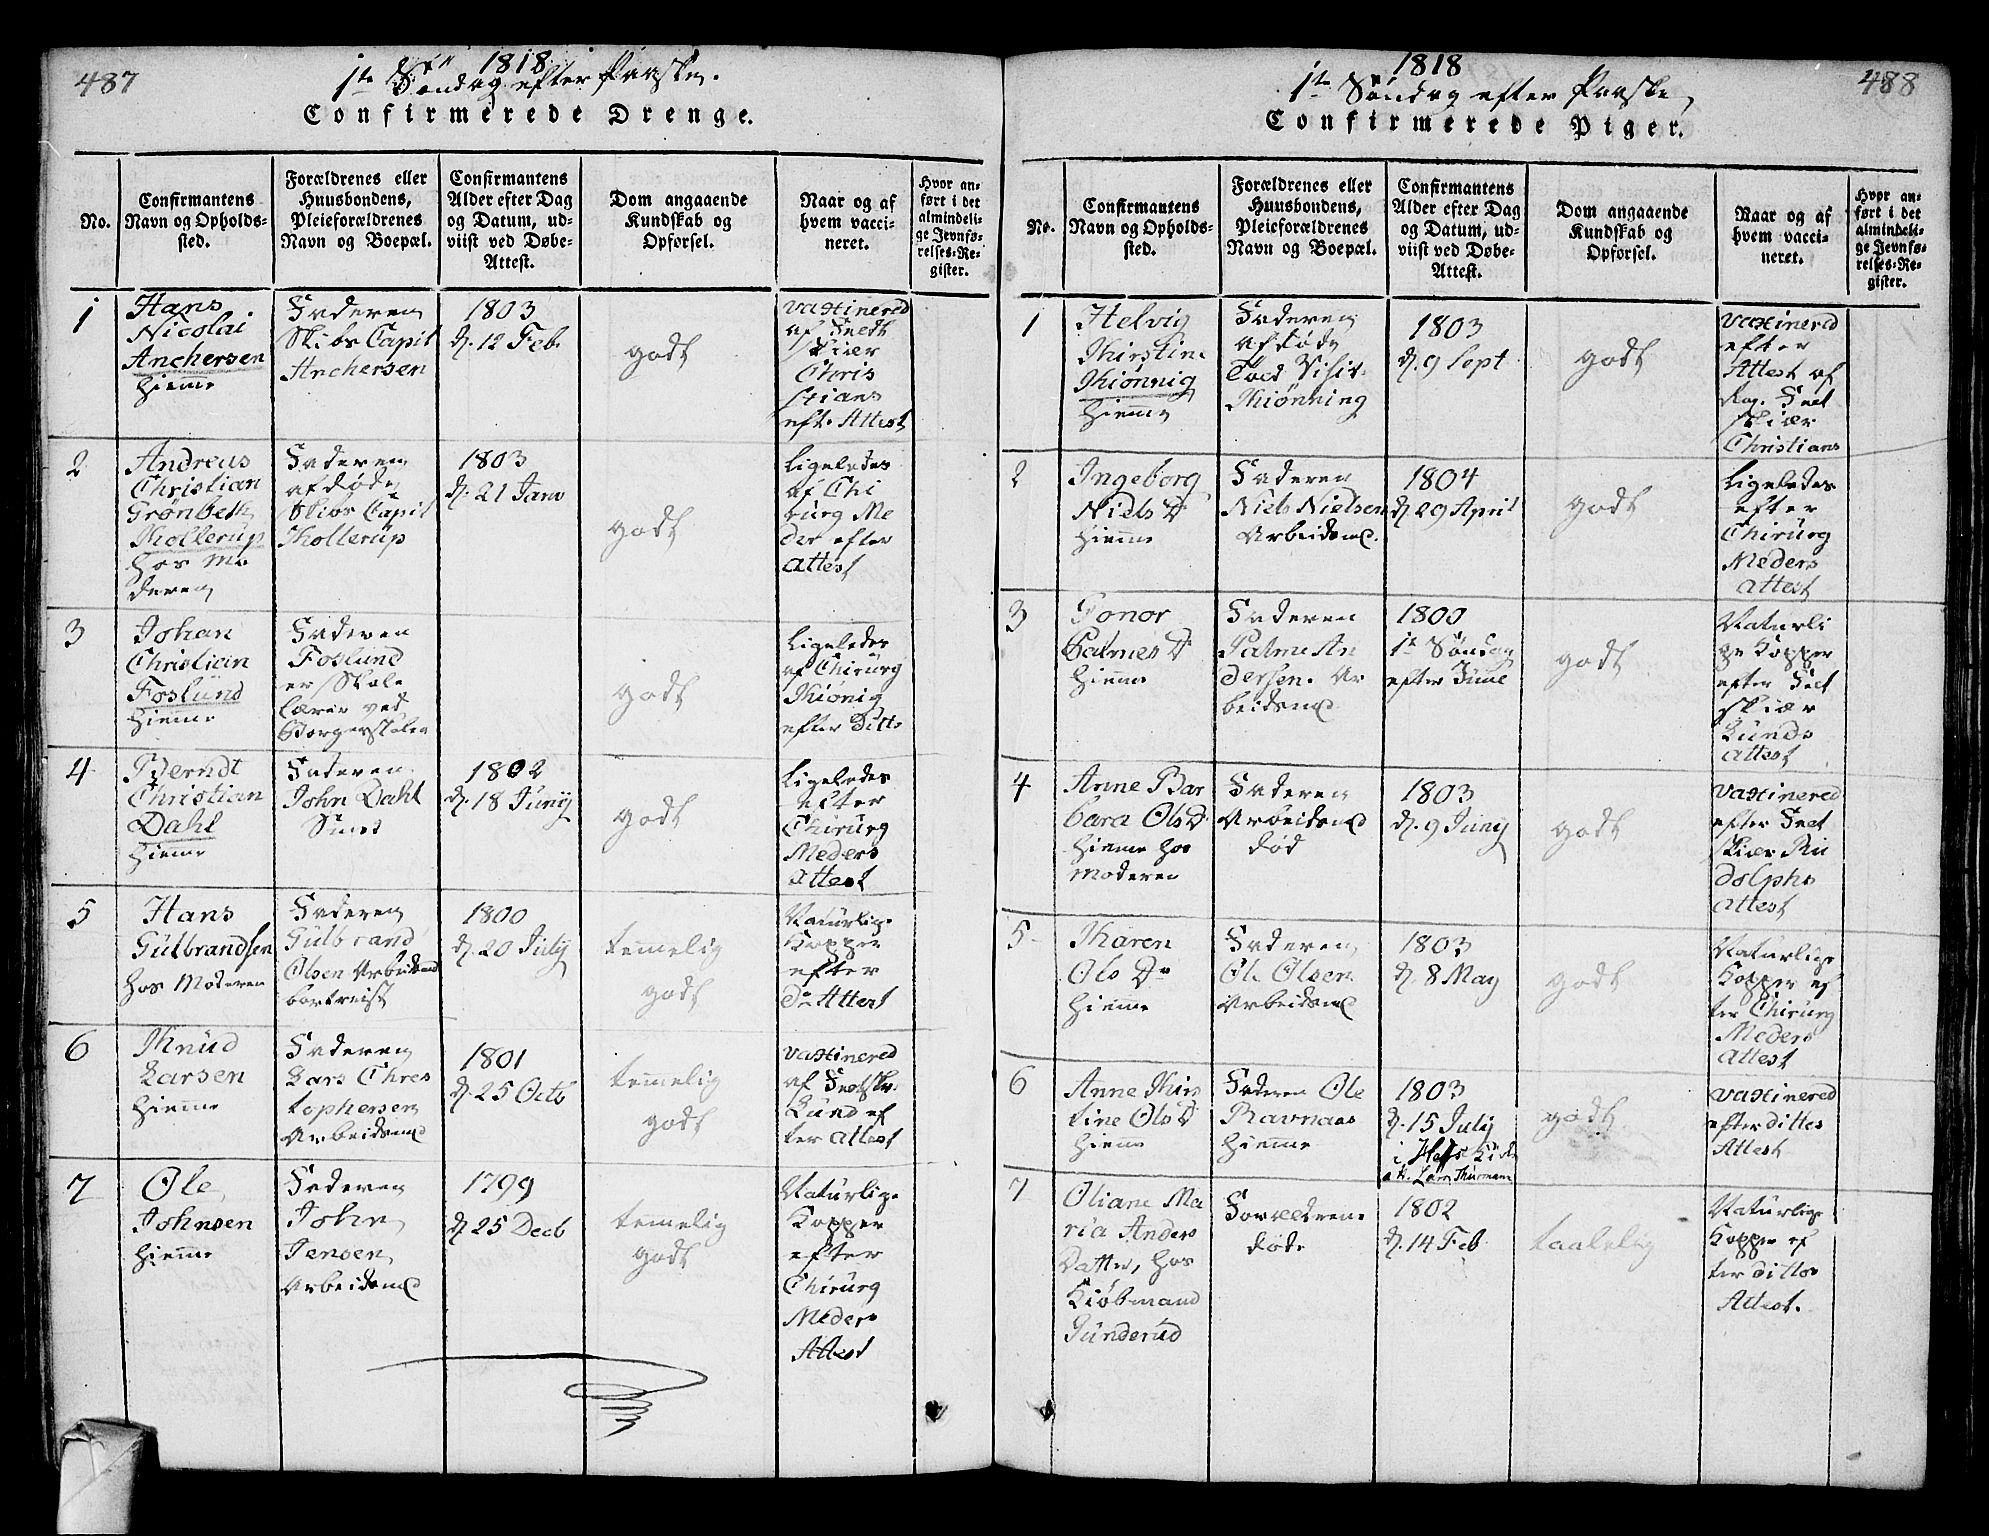 487
1818
1te Søndag efter Paaske.
Confirmerede Drenge.
No.
Confirmantens
Navn og Opholds-
sted.
Forældrenes eller
Huusbondens,
Pleieforældrenes
Navn og Boepæl.
Confirmantens
Alder efter Dag
og Datum, ud-
viist ved Døbe-
Attest.
Dom angaaende
Kundskab og
Opførsel.
Naar og af
hvem vacci-
neret.
Hvor an-
ført i det
almindeli-
ge Jevnfø-
relses-Re-
gister.
1
Hans
Nicolai
Anchersen
hiemme
Faderen
Skibs Capit
Anchersen
1803
d. 12 Feb.
godt
vaxinered
af Fredt
skiær
Chris
stians
eft. Attest
2
Andreas
Christian
Grønbeth
Khollerup
hos Mo
deren
Faderen
afdøde
Skibs Capit
Khollerup
1803
d. 21 Janv
godt
Ligeledes
af Chi
rurg Me
der efter
Attest
3
Johan
Christian
Foslund
hiemme
Faderen
Foslund
er Skole
lærer ved
Borgerskolen
godt
Ligeledes
af Chirurg
Khionig
efter Ditto
4
Berndt
Christian
Dahl
hiemme
Faderen
John Dahl
Smed
1802
d. 18 Junij
godt
Ligeledes
efter
Chirurg
Meders
Attest
5
Hans
Gulbrandsen
hos Moderen
Faderen
Gulbrand
Olsen Arbeidsmd
bortreist
1800
d. 20 July
temmelig
godt
Naturlige
Kopper
efter
Do Attest
6
Khnud
Larsen
hiemme
Faderen
Lars Chres
tophersen
Arbeidsmd
1801
d. 25 Octb
temmelig
godt
vaxinered
af Fredskr.
Lund ef
ter Attest
7
Ole
Johnsen
hiemme
Faderen
John
Jensen
Arbeidsmd
1799
d. 25 Decb
temmelig
godt
Naturlige
Kopper
efter
Chirurg
Meders
Attest
488
1818
1te Søndag efter Paaske
Confirmerede Piger.
No.
Confirmantens
Navn og Opholds-
sted.
Forældrenes eller
Huusbondens,
Pleieforældrenes
Navn og Boepæl.
Confirmantens
Alder efter Dag
og Datum, ud-
viist ved Døbe-
Attest.
Dom angaaende
Kundskab og
Opførsel.
Naar og af
hvem vacci-
neret.
Hvor an-
ført i det
almindeli-
ge Jevnfø-
relses-Re-
gister.
1
Helvig
Khirstine
Khiønnig
hiemme
Faderen
afdøde
Told Visit.
Khiønning
1803
d. 9 Sept
godt
vaxinered
efter
Attest af
Reg. Felt
skiær
Christians
2
Ingeborg
Niels D
hiemme
Faderen
Niels Nielsen
Arbeidsmd.
1804
d. 29 April
godt
Ligeledes
efter
Chirurg
Meders
Attest
3
Gonor
Palmes D
hiemme
Faderen
Palme An
dersen. Ar
beidsmd
1800
1te Søndag
efter Juul
godt
Naturli
ge Kopper
efter Felt
skiær
Lunds
Attest
4
Anne Bar
bara Ols D.
hiemme hos
Moderen
Faderen
Arbeidsmd
død
1803
d. 9 Junij
godt
vaxinered
efter Felt
skiær Ru
dolphs
Attest
5
Kharen
Ols Dr
hiemme
Faderen
Ole Olsen
Arbeidsmd
1803
d. 8 May
godt
Naturlige
Kopper ef
ter Chirurg
Meders
Attest
6
Anne Khirs
tine Ols D
hieme
Faderen Ole
Ravnaas
hiemme
1803
d. 15 July
godt
vaxinered
efter dittos
Attest
7
Oliane Ma
ria Anders
Datter, hos
Kiøbmand
Gunderud
Forældrene
døde
1802
d. 14 Feb
taalelig
Naturlige
Kopper ef
ter dittos
Attest.